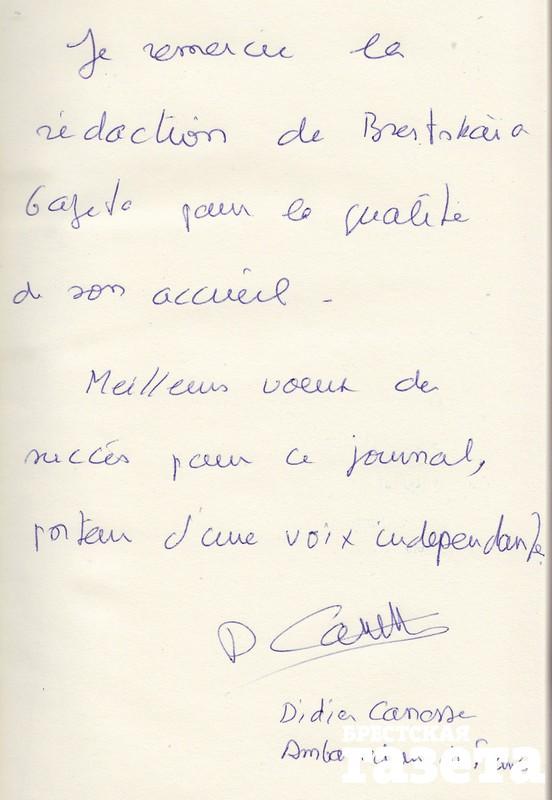 Je remercie la
rédaction de Brestskaïa
Gazeta pour la qualité
de son accueil.
Meilleurs voeux de
succès pour ce journal,
porteur d'une voix indépendante.
D Canesse
Didier Canesse
Ambassadeur de France
БРЕСТСКАЯ
газета